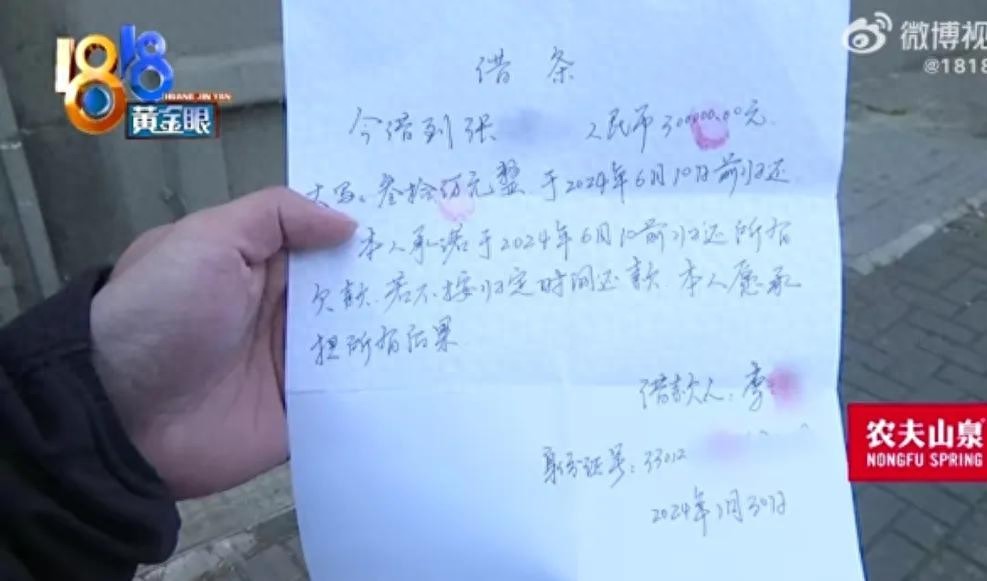 1818
HUANG JIN YAN
黄金眼
微博视
@1818
借条
今借到张 人民币300000.00元
大写:叁拾万元整 于2024年6月10日前归还
本人承诺于2024年6月10前归还所有
欠款.若不按归定时间还款.本人愿承
担所有后果
借款人:李
身份证号:33012
2024年 月30日
农夫山泉
NONGFU SPRING